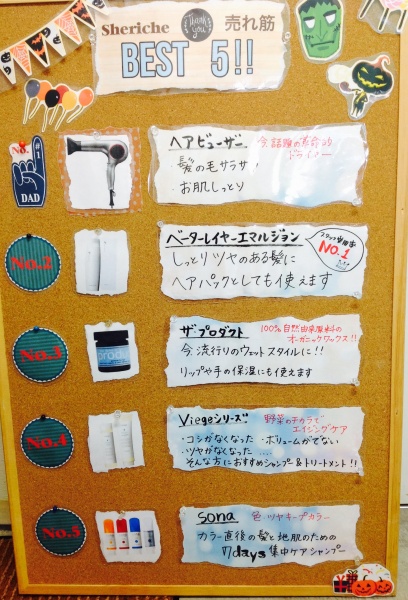 Sheriche Thank you 売れ筋
BEST 5!!
#1
DAD
ヘアビューザー 今、話題の革命的
ドライヤー
・髪の毛サラサラ!
・お肌しっとり
No.2
ベーターレイヤーエマルジョン
No.1
しっとりツヤのある髪に
ヘアパックとしても使えます
No.3
ザ プロダクト 100%自然由来原料の
オーガニックワックス!!
今、流行りのウェットスタイルに!!
リップや手の保湿にも使えます
No.4
Viegeシリーズ 野菜のチカラで
エイジングケア
・コシがなくなった ・ボリュームがでない
・ツヤがなくなった ....
そんな方におすすめシャンプー&トリートメント!!
No.5
sona 色・ツヤキープカラー
カラー直後の髪と地肌のための
7days 集中ケアシャンプー